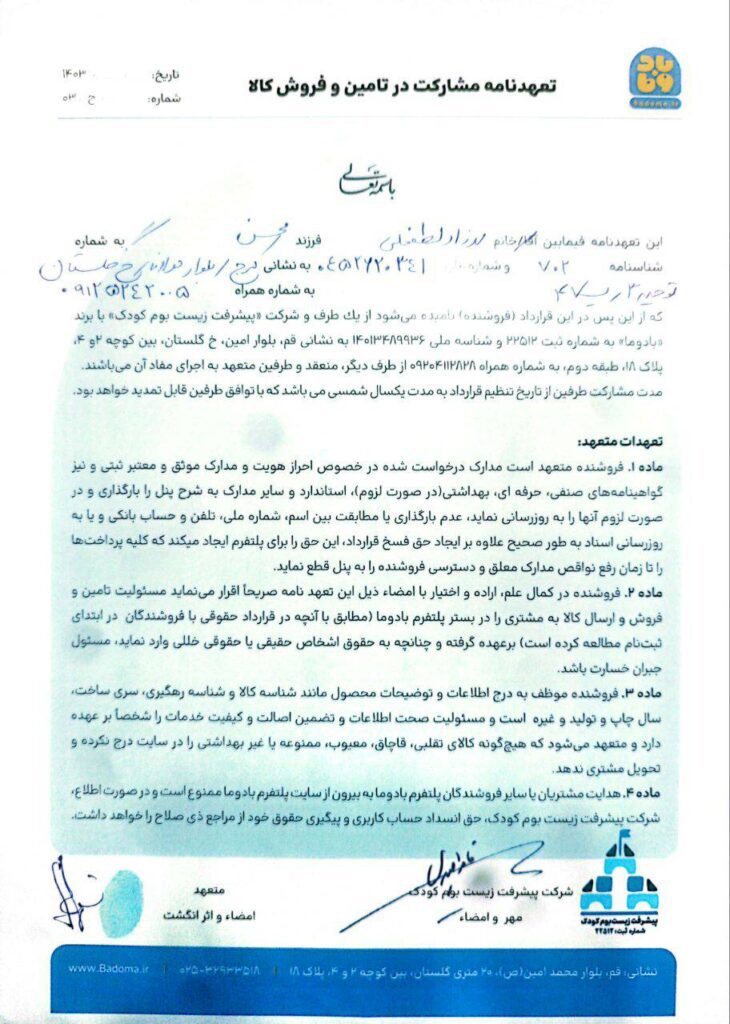 باد وما
Badoma.ir
تعهدنامه مشارکت در تامین و فروش کالا
تاریخ: ۱۴۰۳
شماره: ح ۰۳۰
باسمه تعالی
این تعهدنامه فیمابین آقا/خانم لطفعلی فرزند محسن به شماره
شناسنامه ۷۰۲ و شماره ملی ۰۴۵۲۲۲۰۳۴۱ به نشانی کرج / بلوار گلستان
توحید ۲ ۴۷ به شماره همراه ۰۹۱۲۵۲۴۲۰۰۵
که از این پس در این قرارداد (فروشنده) نامیده می‌شود از یک طرف و شرکت «پیشرفت زیست بوم کودک» با برند
«بادوما» به شماره ثبت ۲۲۵۱۲ و شناسه ملی ۱۴۰۱۳۴۸۹۹۳۶ به نشانی قم، بلوار امین، خ گلستان، بین کوچه ۲و ۴،
پلاک ۱۸، طبقه دوم، به شماره همراه ۰۹۲۰۴۱۱۲۸۲۸ از طرف دیگر، منعقد و طرفین متعهد به اجرای مفاد آن می‌باشند.
مدت مشارکت طرفین از تاریخ تنظیم قرارداد به مدت یکسال شمسی می باشد که با توافق طرفین قابل تمدید خواهد بود.
تعهدات متعهد:
ماده ۱. فروشنده متعهد است مدارک درخواست شده در خصوص احراز هویت و مدارک موثق و معتبر ثبتی و نیز
گواهینامه‌های صنفی، حرفه ای، بهداشتی(در صورت لزوم)، استاندارد و سایر مدارک به شرح پنل را بارگذاری و در
صورت لزوم آنها را به روزرسانی نماید، عدم بارگذاری یا مطابقت بین اسم، شماره ملی، تلفن و حساب بانکی و یا به
روزرسانی اسناد به طور صحیح علاوه بر ایجاد حق فسخ قرارداد، این حق را برای پلتفرم ایجاد میکند که کلیه پرداخت‌ها
را تا زمان رفع نواقص مدارک معلق و دسترسی فروشنده را به پنل قطع نماید.
ماده ۲. فروشنده در کمال علم، اراده و اختیار با امضاء ذیل این تعهد نامه صریحاً اقرار می‌نماید مسئولیت تامین و
فروش و ارسال کالا به مشتری را در بستر پلتفرم بادوما (مطابق با آنچه در قرارداد حقوقی با فروشندگان در ابتدای
ثبت‌نام مطالعه کرده است) برعهده گرفته و چنانچه به حقوق اشخاص حقیقی یا حقوقی خللی وارد نماید، مسئول
جبران خسارت باشد.
ماده ۳. فروشنده موظف به درج اطلاعات و توضیحات محصول مانند شناسه کالا و شناسه رهگیری، سری ساخت،
سال چاپ و تولید و غیره است و مسئولیت صحت اطلاعات و تضمین اصالت و کیفیت خدمات را شخصاً بر عهده
دارد و متعهد می‌شود که هیچ‌گونه کالای تقلبی، قاچاق، معیوب، ممنوعه یا غیر بهداشتی را در سایت درج نکرده و
تحویل مشتری ندهد.
ماده ۴. هدایت مشتریان یا سایر فروشندگان پلتفرم بادوما به بیرون از سایت پلتفرم بادوما ممنوع است و در صورت اطلاع،
شرکت پیشرفت زیست بوم کودک، حق انسداد حساب کاربری و پیگیری حقوق خود از مراجع ذی صلاح را خواهد داشت.
شرکت پیشرفت زیست بوم کودک
مهر و امضاء
متعهد
امضاء و اثر انگشت
پیشرفت زیست بوم کودک
شماره ثبت: ۲۲۵۱۲
نشانی: قم، بلوار محمد امین(ص)، ۲۰ متری گلستان، بین کوچه ۲ و ۴، پلاک ۱۸ | ۰۲۵-۳۲۹۳۳۵۱۸ | www.Badoma.ir